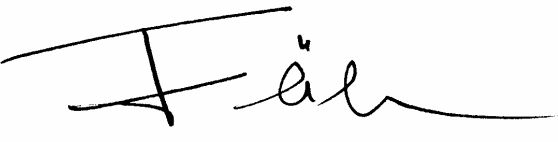 Fäh